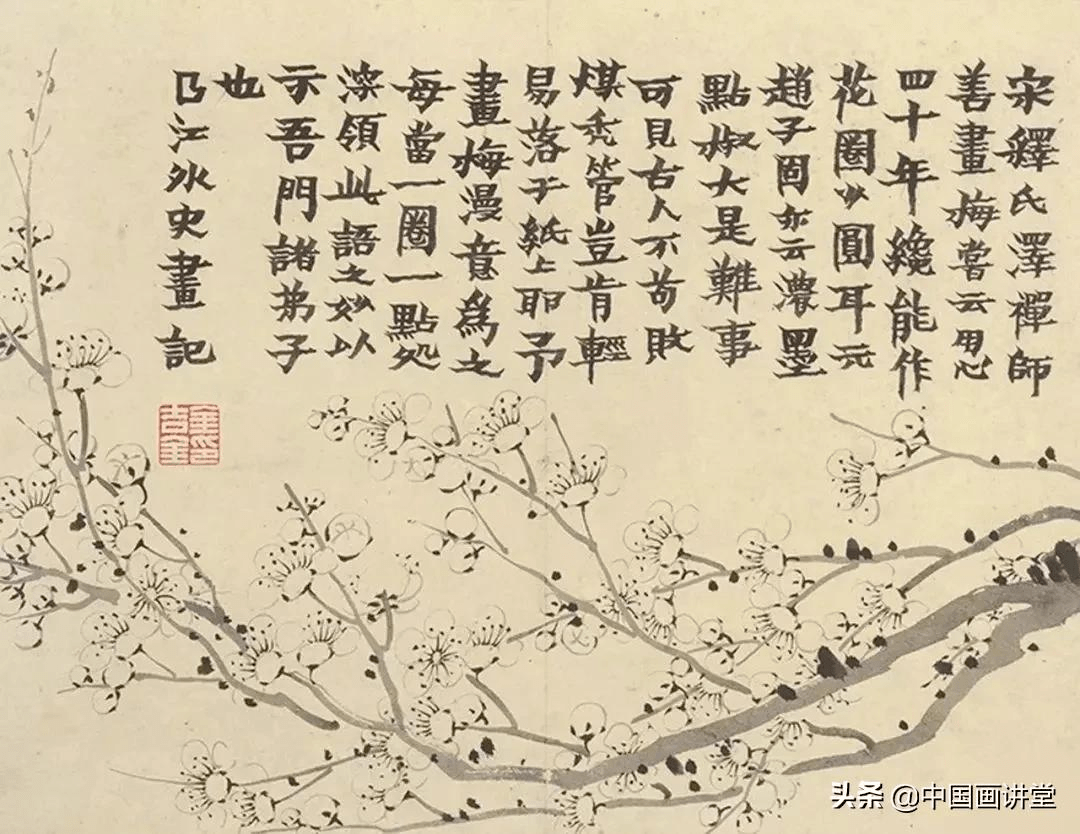 宋釋氏澤禪師
善畫梅嘗云用心
四十年纔能作
花圈少圓耳元
趙子固亦云濃墨
點椒大是難事
可見古人不苟敗
煤禿管豈肯輕
易落于紙上耶予
畫梅漫意為之
每當一圈一點処
深領此語之妙以
示吾門諸弟子
也
乃江外史畫記
金吉金印
头条 @中国画讲堂